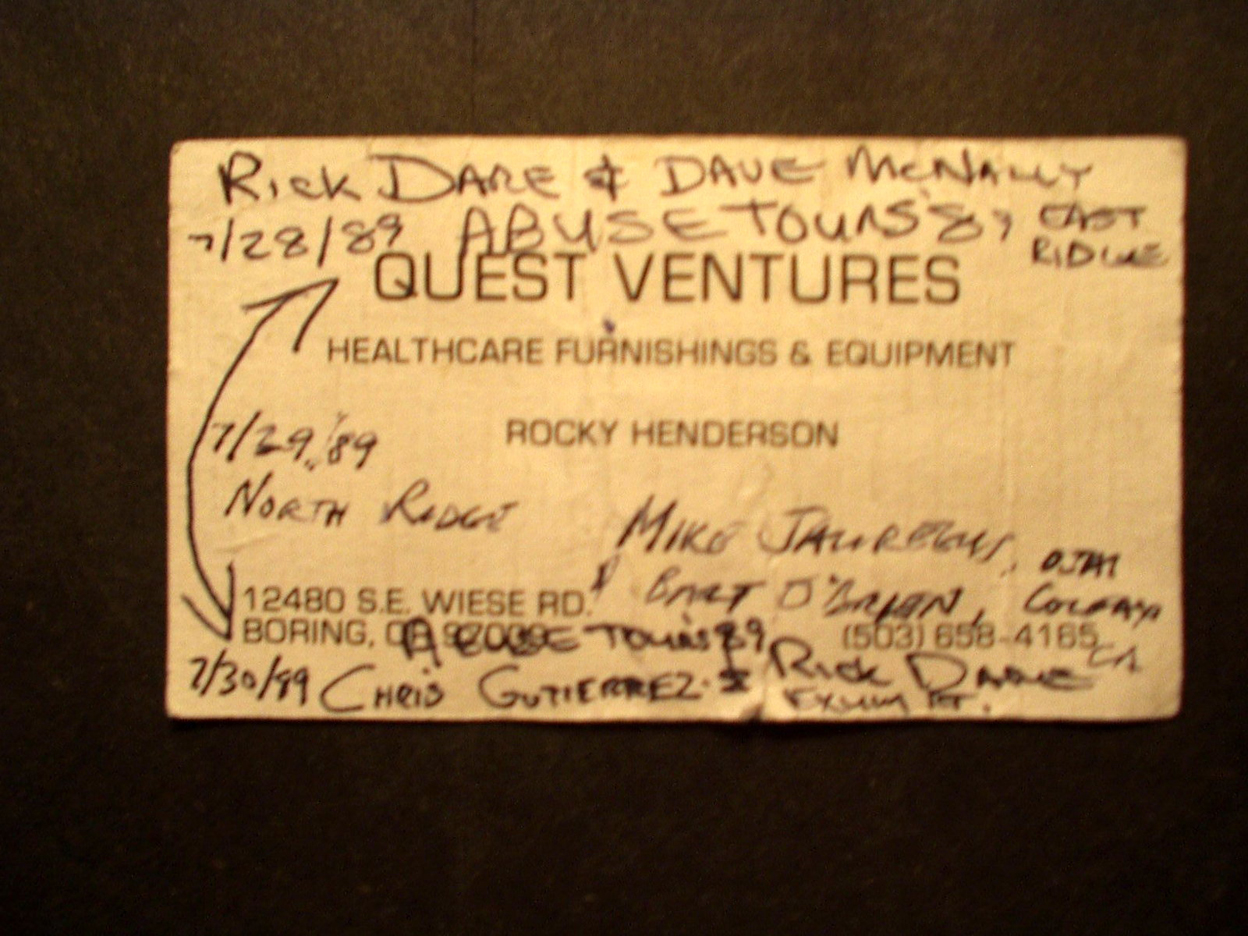 Rick DARE & DAVE McNALLY
7/28/89 ABUSE TOURS 89 EAST
RIDGE
QUEST VENTURES
HEALTHCARE FURNISHINGS & EQUIPMENT
7/29/89
ROCKY HENDERSON
NORTH RIDGE
MIKE JAUREGUI, OJAI
& BART O'BRIEN, COLFAX,
CA
12480 S.E. WIESE RD.
BORING, OR 97009 (503) 658-4165
ABUSE TOURS 89
7/30/89 CHRIS GUTIERREZ & RICK DARE
EXUM RT.